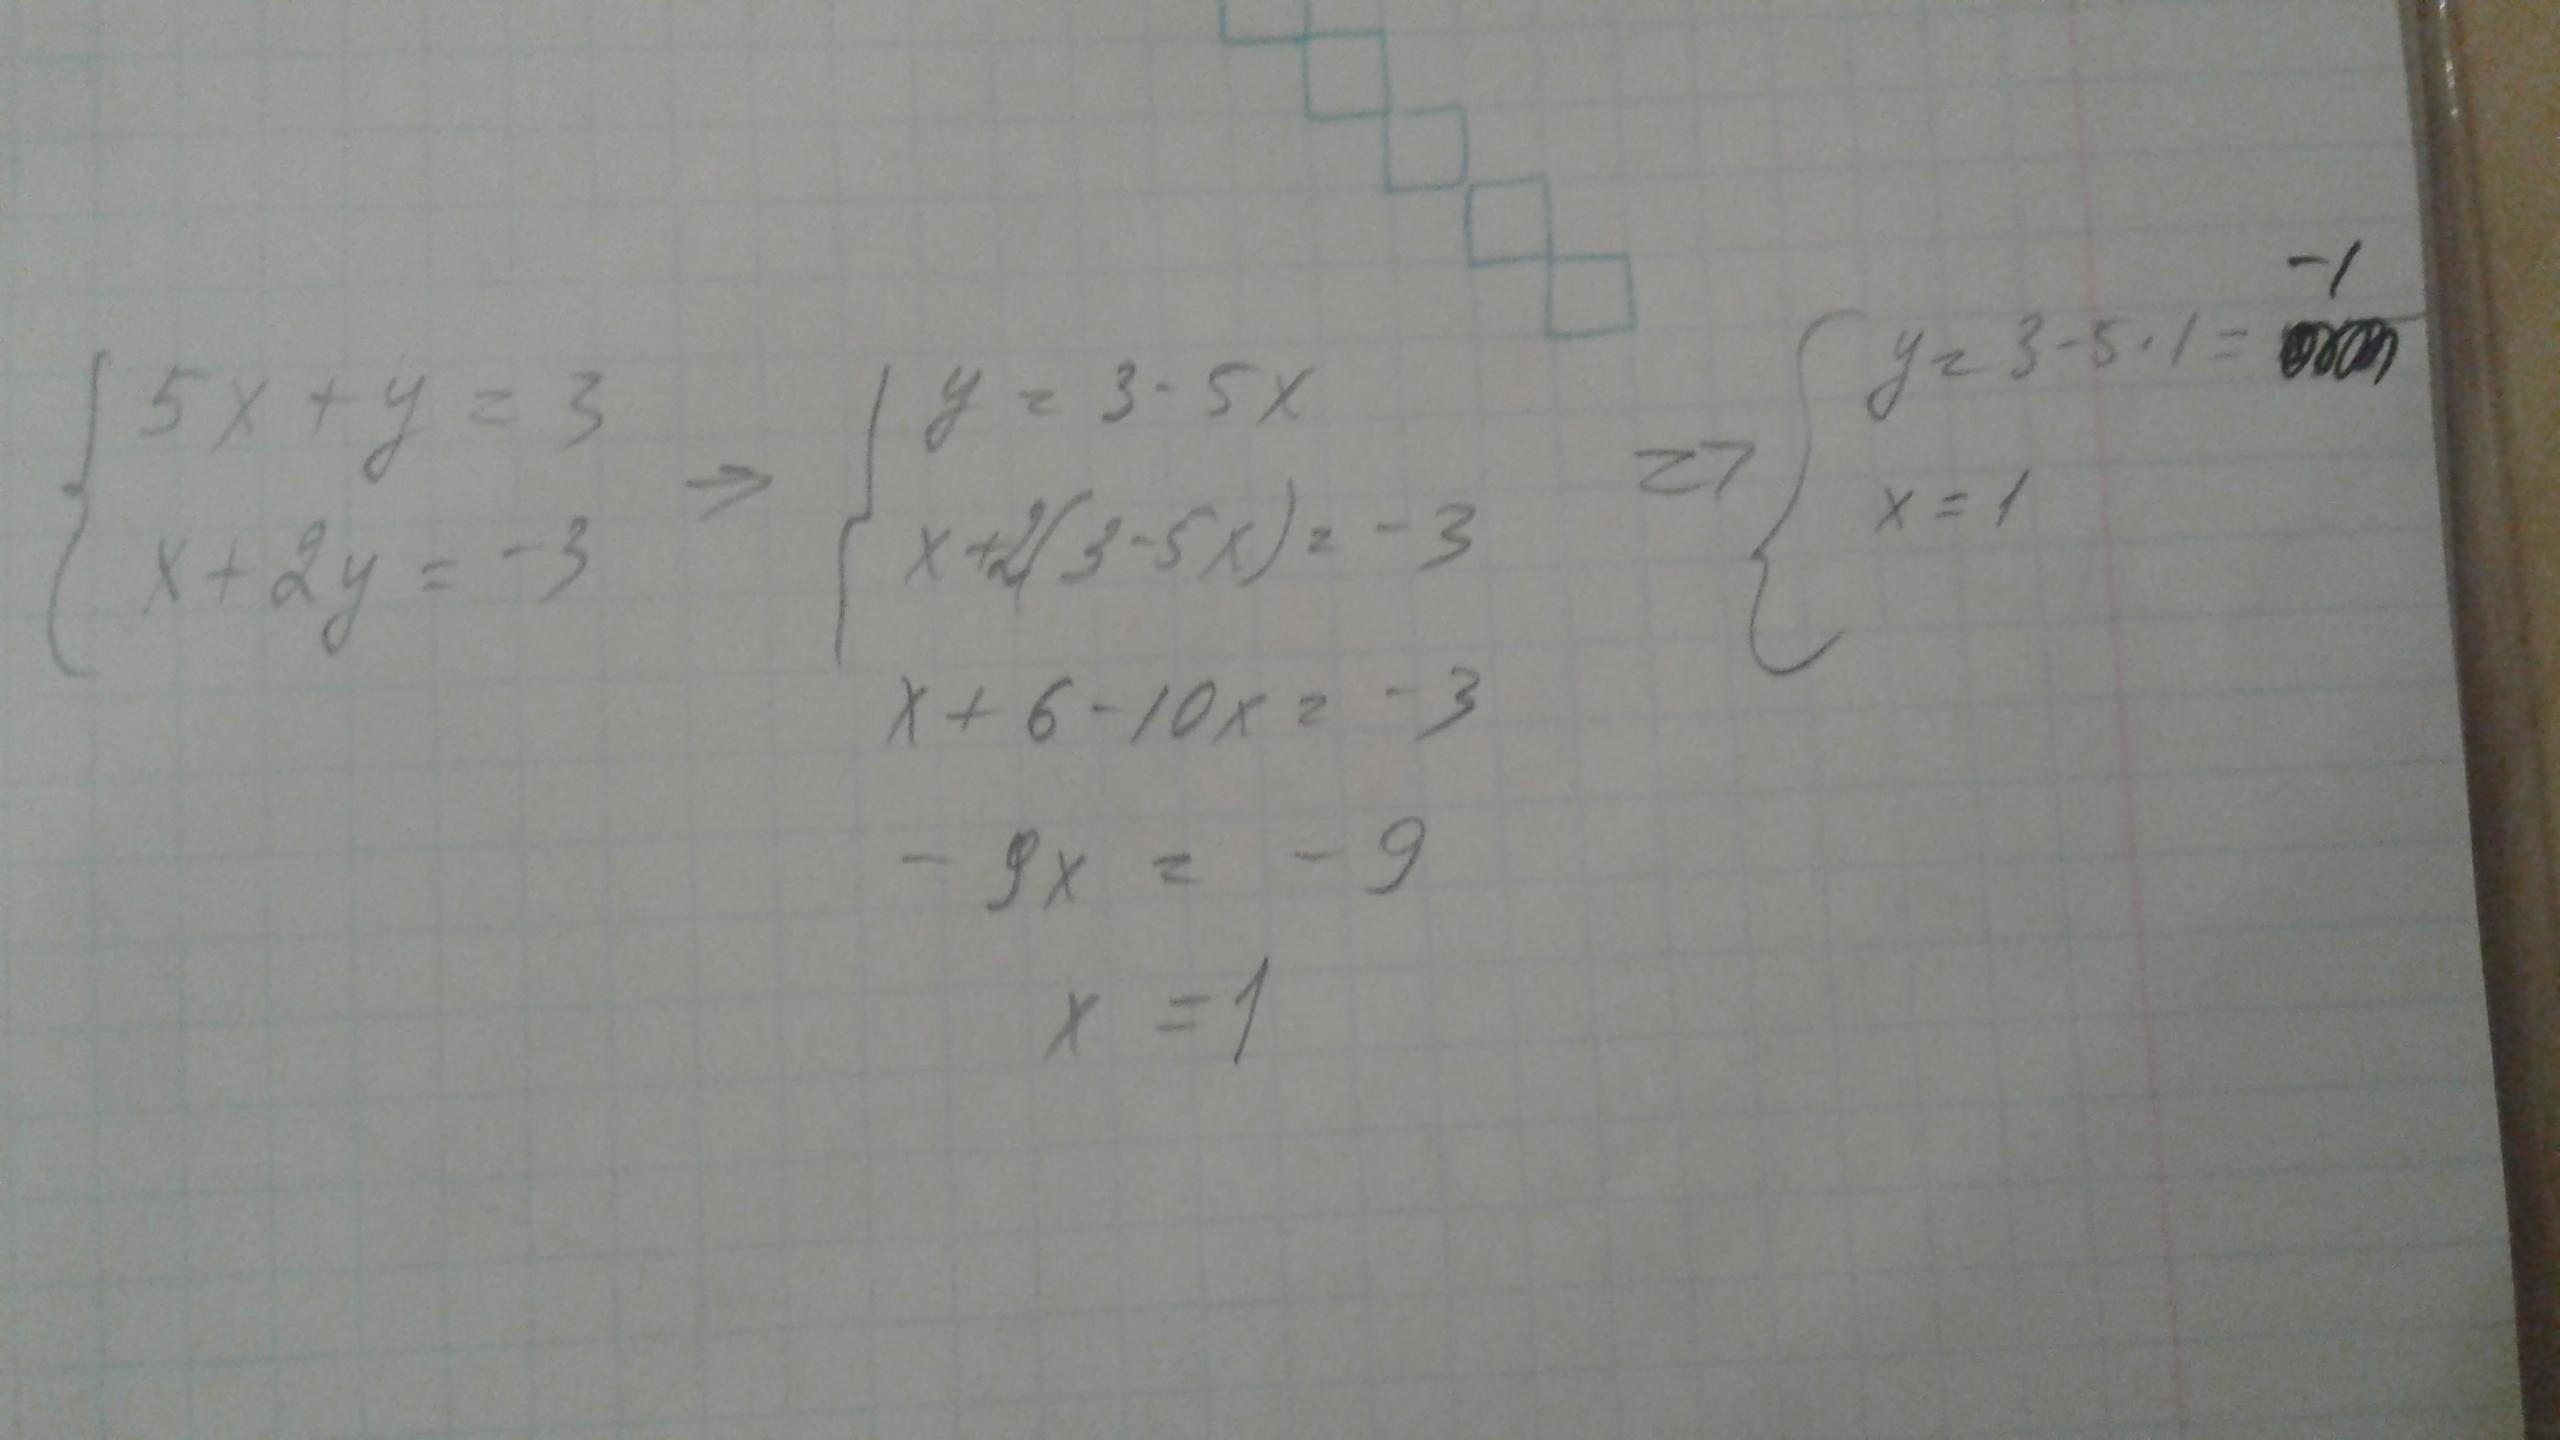 5x + y = 3
x + 2y = -3
→
y = 3 - 5x
x + 2(3 - 5x) = -3
x + 6 - 10x = -3
-9x = -9
x = 1
=>
y = 3 - 5 · 1 = -1
x = 1